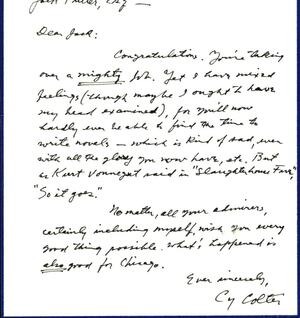 Jack Fuller, Esq —
Dear Jack:
Congratulations. You're taking
over a mighty job. Yet I have mixed
feelings (though maybe I ought to have
my head examined), for you'll now
hardly ever be able to find the time to
write novels — which is kind of sad, even
with all the glory you now have, etc. But
as Kurt Vonnegut said in "Slaughterhouse Five,"
"So it goes."
No matter, all your admirers,
certainly including myself, wish you every
good thing possible. What's happened is
also good for Chicago.
Ever sincerely,
Cy Colter